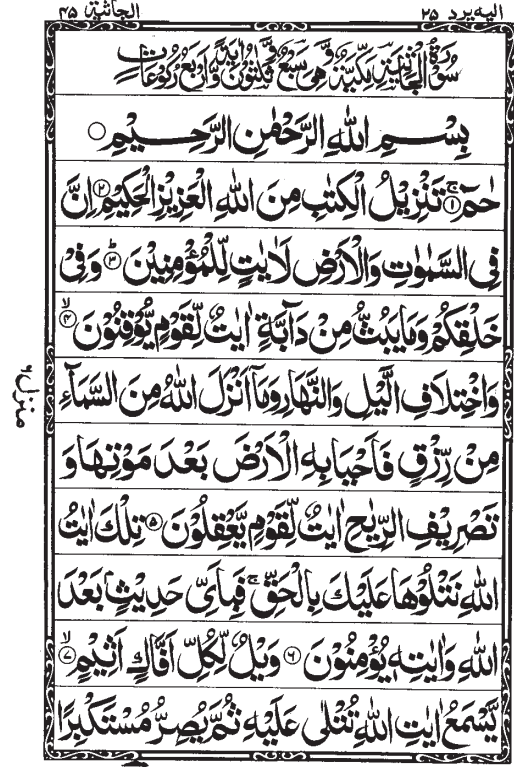 اليه يرد ٢٥
الجاثية ٤٥
سُوْرَةُ الْجَاثِيَةِ مَكِّيَّةٌ وَّهِيَ سَبْعٌ وَّثَلٰثُوْنَ اٰيَةً وَّاَرْبَعُ رُكُوْعَاتٍ
بِسْمِ اللّٰهِ الرَّحْمٰنِ الرَّحِيْمِ ○
حٰمٓ ۚ﴿۱﴾ تَنْزِيْلُ الْكِتٰبِ مِنَ اللّٰهِ الْعَزِيْزِ الْحَكِيْمِ ﴿۲﴾ اِنَّ
فِى السَّمٰوٰتِ وَالْاَرْضِ لَاٰيٰتٍ لِّلْمُؤْمِنِيْنَ ؕ﴿۳﴾ وَفِىْ
خَلْقِكُمْ وَمَا يَبُثُّ مِنْ دَآبَّةٍ اٰيٰتٌ لِّقَوْمٍ يُّوْقِنُوْنَ ۙ﴿۴﴾
وَاخْتِلَافِ الَّيْلِ وَالنَّهَارِ وَمَاۤ اَنْزَلَ اللّٰهُ مِنَ السَّمَآءِ
مِنْ رِّزْقٍ فَاَحْيَا بِهِ الْاَرْضَ بَعْدَ مَوْتِهَا وَ
تَصْرِيْفِ الرِّيٰحِ اٰيٰتٌ لِّقَوْمٍ يَّعْقِلُوْنَ ﴿۵﴾ تِلْكَ اٰيٰتُ
اللّٰهِ نَتْلُوْهَا عَلَيْكَ بِالْحَقِّ ۚ فَبِاَىِّ حَدِيْثٍۭ بَعْدَ
اللّٰهِ وَاٰيٰتِهٖ يُؤْمِنُوْنَ ﴿۶﴾ وَيْلٌ لِّكُلِّ اَفَّاكٍ اَثِيْمٍ ۙ﴿۷﴾
يَّسْمَعُ اٰيٰتِ اللّٰهِ تُتْلٰى عَلَيْهِ ثُمَّ يُصِرُّ مُسْتَكْبِرًا
منزل ٦